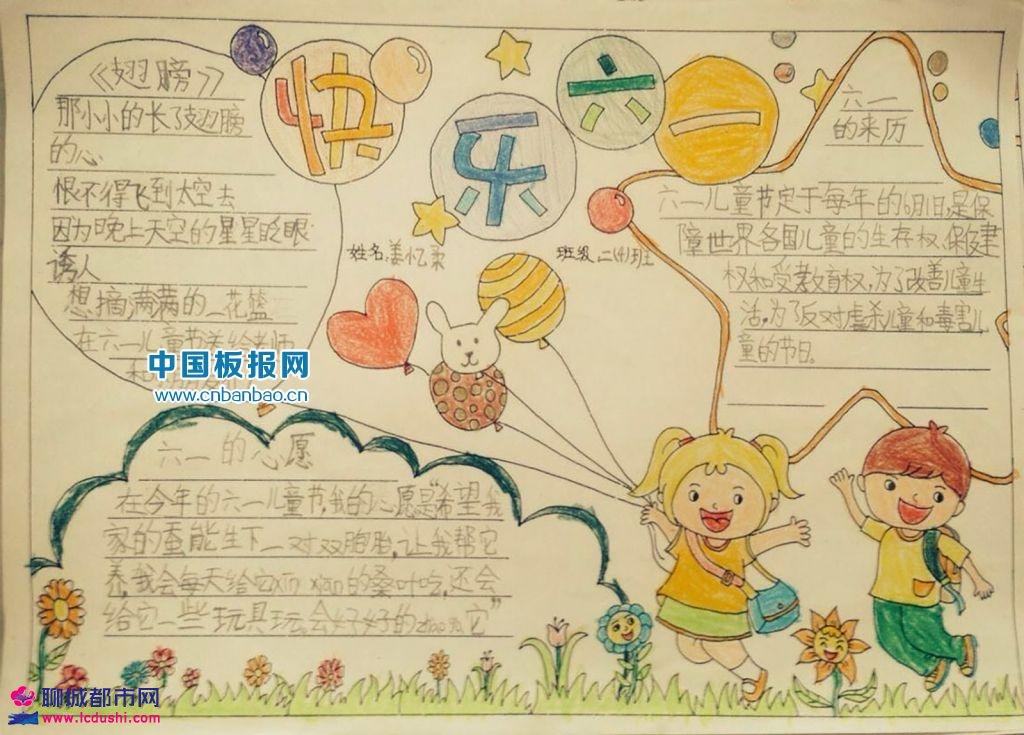 快乐六一
《翅膀》
那小小的长了翅膀
的心
恨不得飞到太空去
因为晚上天空的星星眨眼
诱人
想摘满满的一花篮
在六一儿童节送给老师
和
六一
的来历
六一儿童节定于每年的6月1日,是保
障世界各国儿童的生存权、保健
权和受教育权,为了改善儿童生
活,为了反对虐杀儿童和毒害儿
童的节日。
姓名:姜忆柔
班级二(4)班
中国板报网
www.cnbanbao.cn
六一的心愿
在今年的六一儿童节,我的心愿是“希望我
家的蚕能生下一对双胞胎,让我帮它
养,我会每天给它xīn xiān的桑叶吃,还会
给它一些玩具玩,会好好的zhào gù它”
聊城都市网
www.lcdushi.com